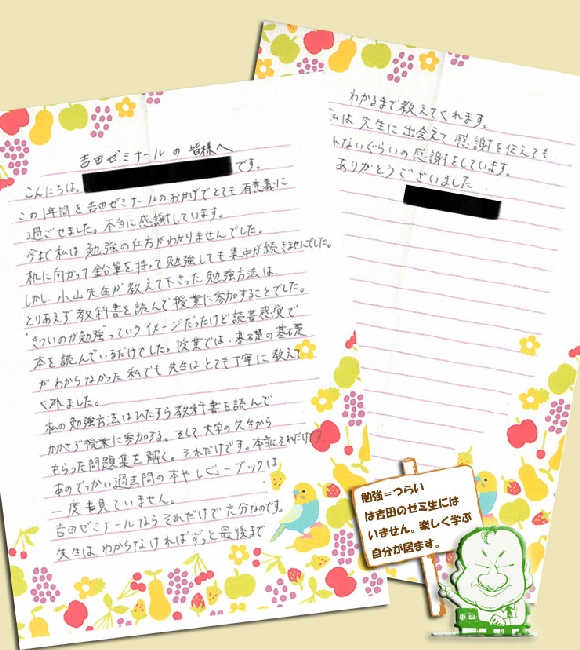 吉田ゼミナールの皆様へ
こんにちは、 です。
この1年間を吉田ゼミナールのおかげでとても有意義に
過ごせました。本当に感謝しています。
今まで私は勉強の仕方がわかりませんでした。
机に向かって鉛筆を持って勉強しても集中が続きませんでした。
しかし、小山先生が教えて下さった勉強方法は、
とりあえず教科書を読んで授業に参加することでした。
きついのが勉強っていうイメージだったけど読書感覚で
本を読んでいるだけでした。授業では、基礎の基礎
がわからなかった私でも先生はとても丁寧に教えて
くれました。
私の勉強方法はひたすら教科書を読んで
かかさず授業に参加する。そして大学の先生から
もらった問題集を解く。それだけです。本当にそれだけです。
あのでっかい過去問の本やレビューブックは
一度も見ていません。
吉田ゼミナールならそれだけで十分なのです。
先生は、わからなければずっと最後まで
わかるまで教えてくれます。
私は先生に出会えて感謝を伝えても
れないぐらいの感謝をしています。
ありがとうございました
勉強=つらい
は吉田のゼミ生には
いません。楽しく学ぶ
自分が居ます。